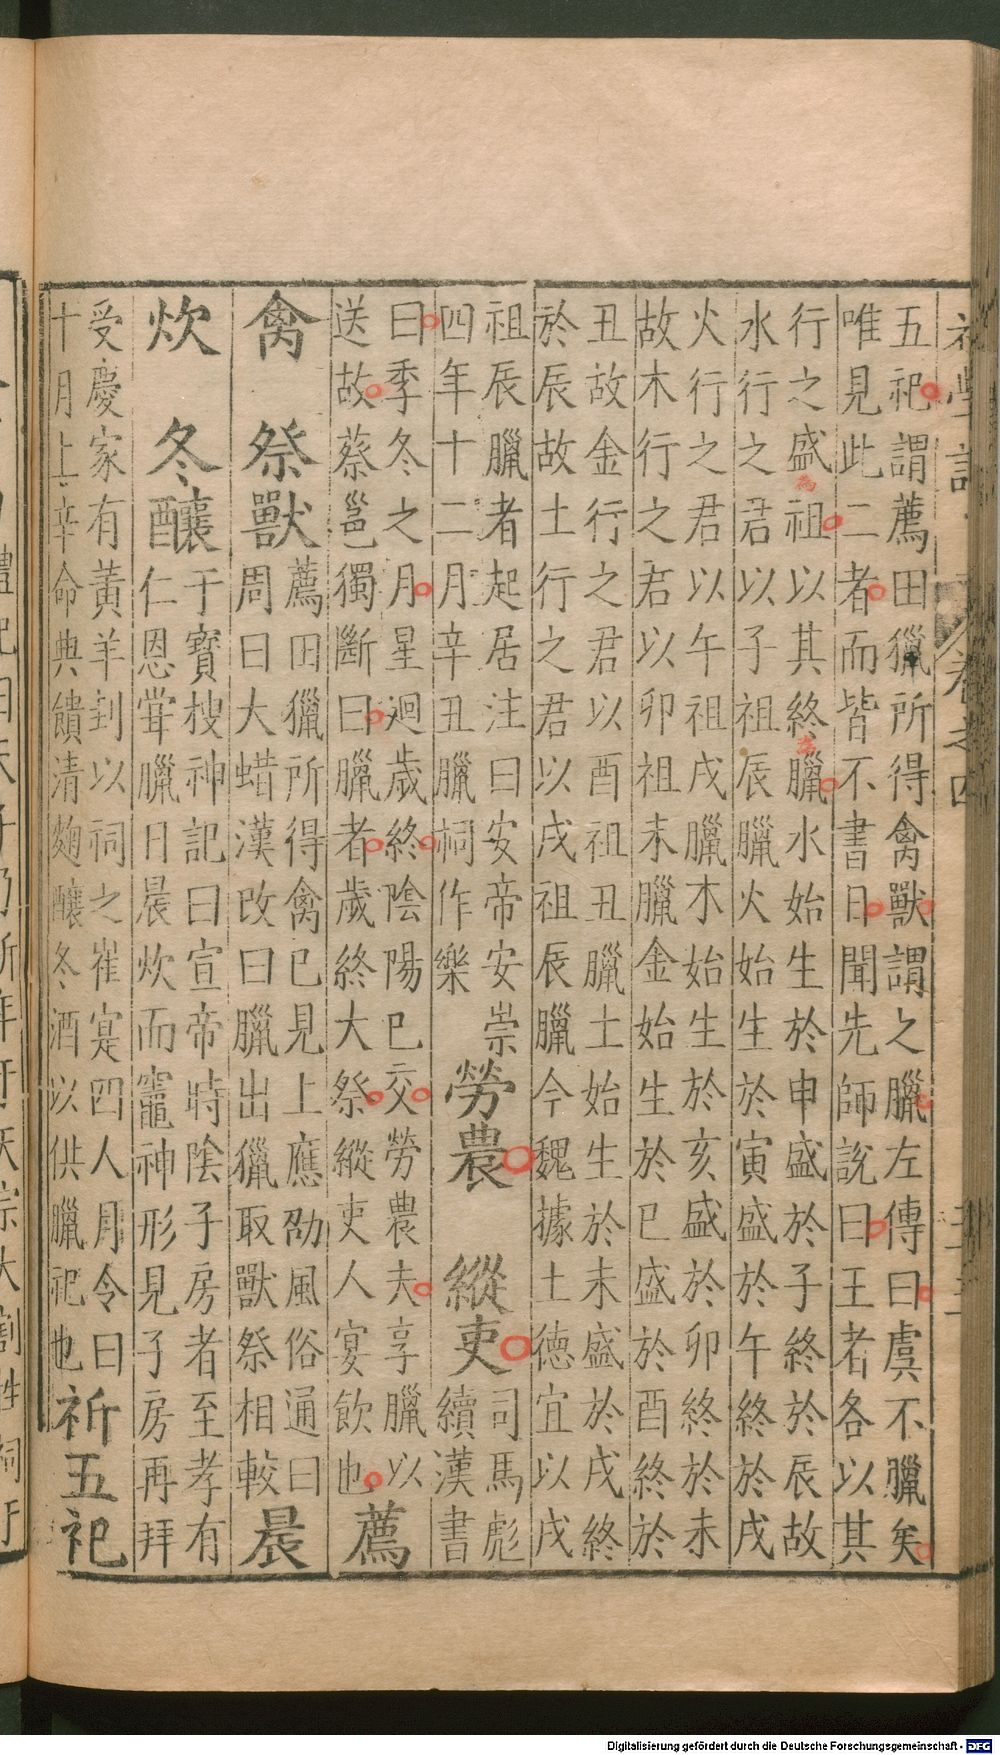 卷之四
五祀謂薦田獵所得禽獸謂之臘左傳曰虞不臘矣
唯見此二者而皆不書日聞先師說曰王者各以其
行之盛為祖以其終為臘水始生於申盛於子終於辰故
水行之君以子祖辰臘火始生於寅盛於午終於戌
火行之君以午祖戌臘木始生於亥盛於卯終於未
故木行之君以卯祖未臘金始生於巳盛於酉終於
丑故金行之君以酉祖丑臘土始生於未盛於戌終
於辰故土行之君以戌祖辰臘今魏據土德宜以戌
祖辰臘者起居注曰安帝安崇
四年十二月辛丑臘祠作樂
勞農 縱吏
司馬彪
續漢書
曰季冬之月星迴歲終陰陽已交勞農夫享臘以
送故蔡邕獨斷曰臘者歲終大祭縱吏人宴飲也
薦
禽 祭獸
薦田獵所得禽已見上應劭風俗通曰
周曰大蜡漢改曰臘出獵取獸祭相較
晨
炊 冬釀
于寶搜神記曰宣帝時陰子房者至孝有
仁恩甞臘日晨炊而竈神形見子房再拜
受慶家有黃羊封以祠之崔寔四人月令曰
十月上辛命典饋清麴釀冬酒以供臘祀也
祈五祀
Digitalisierung gefördert durch die Deutsche Forschungsgemeinschaft - DFG